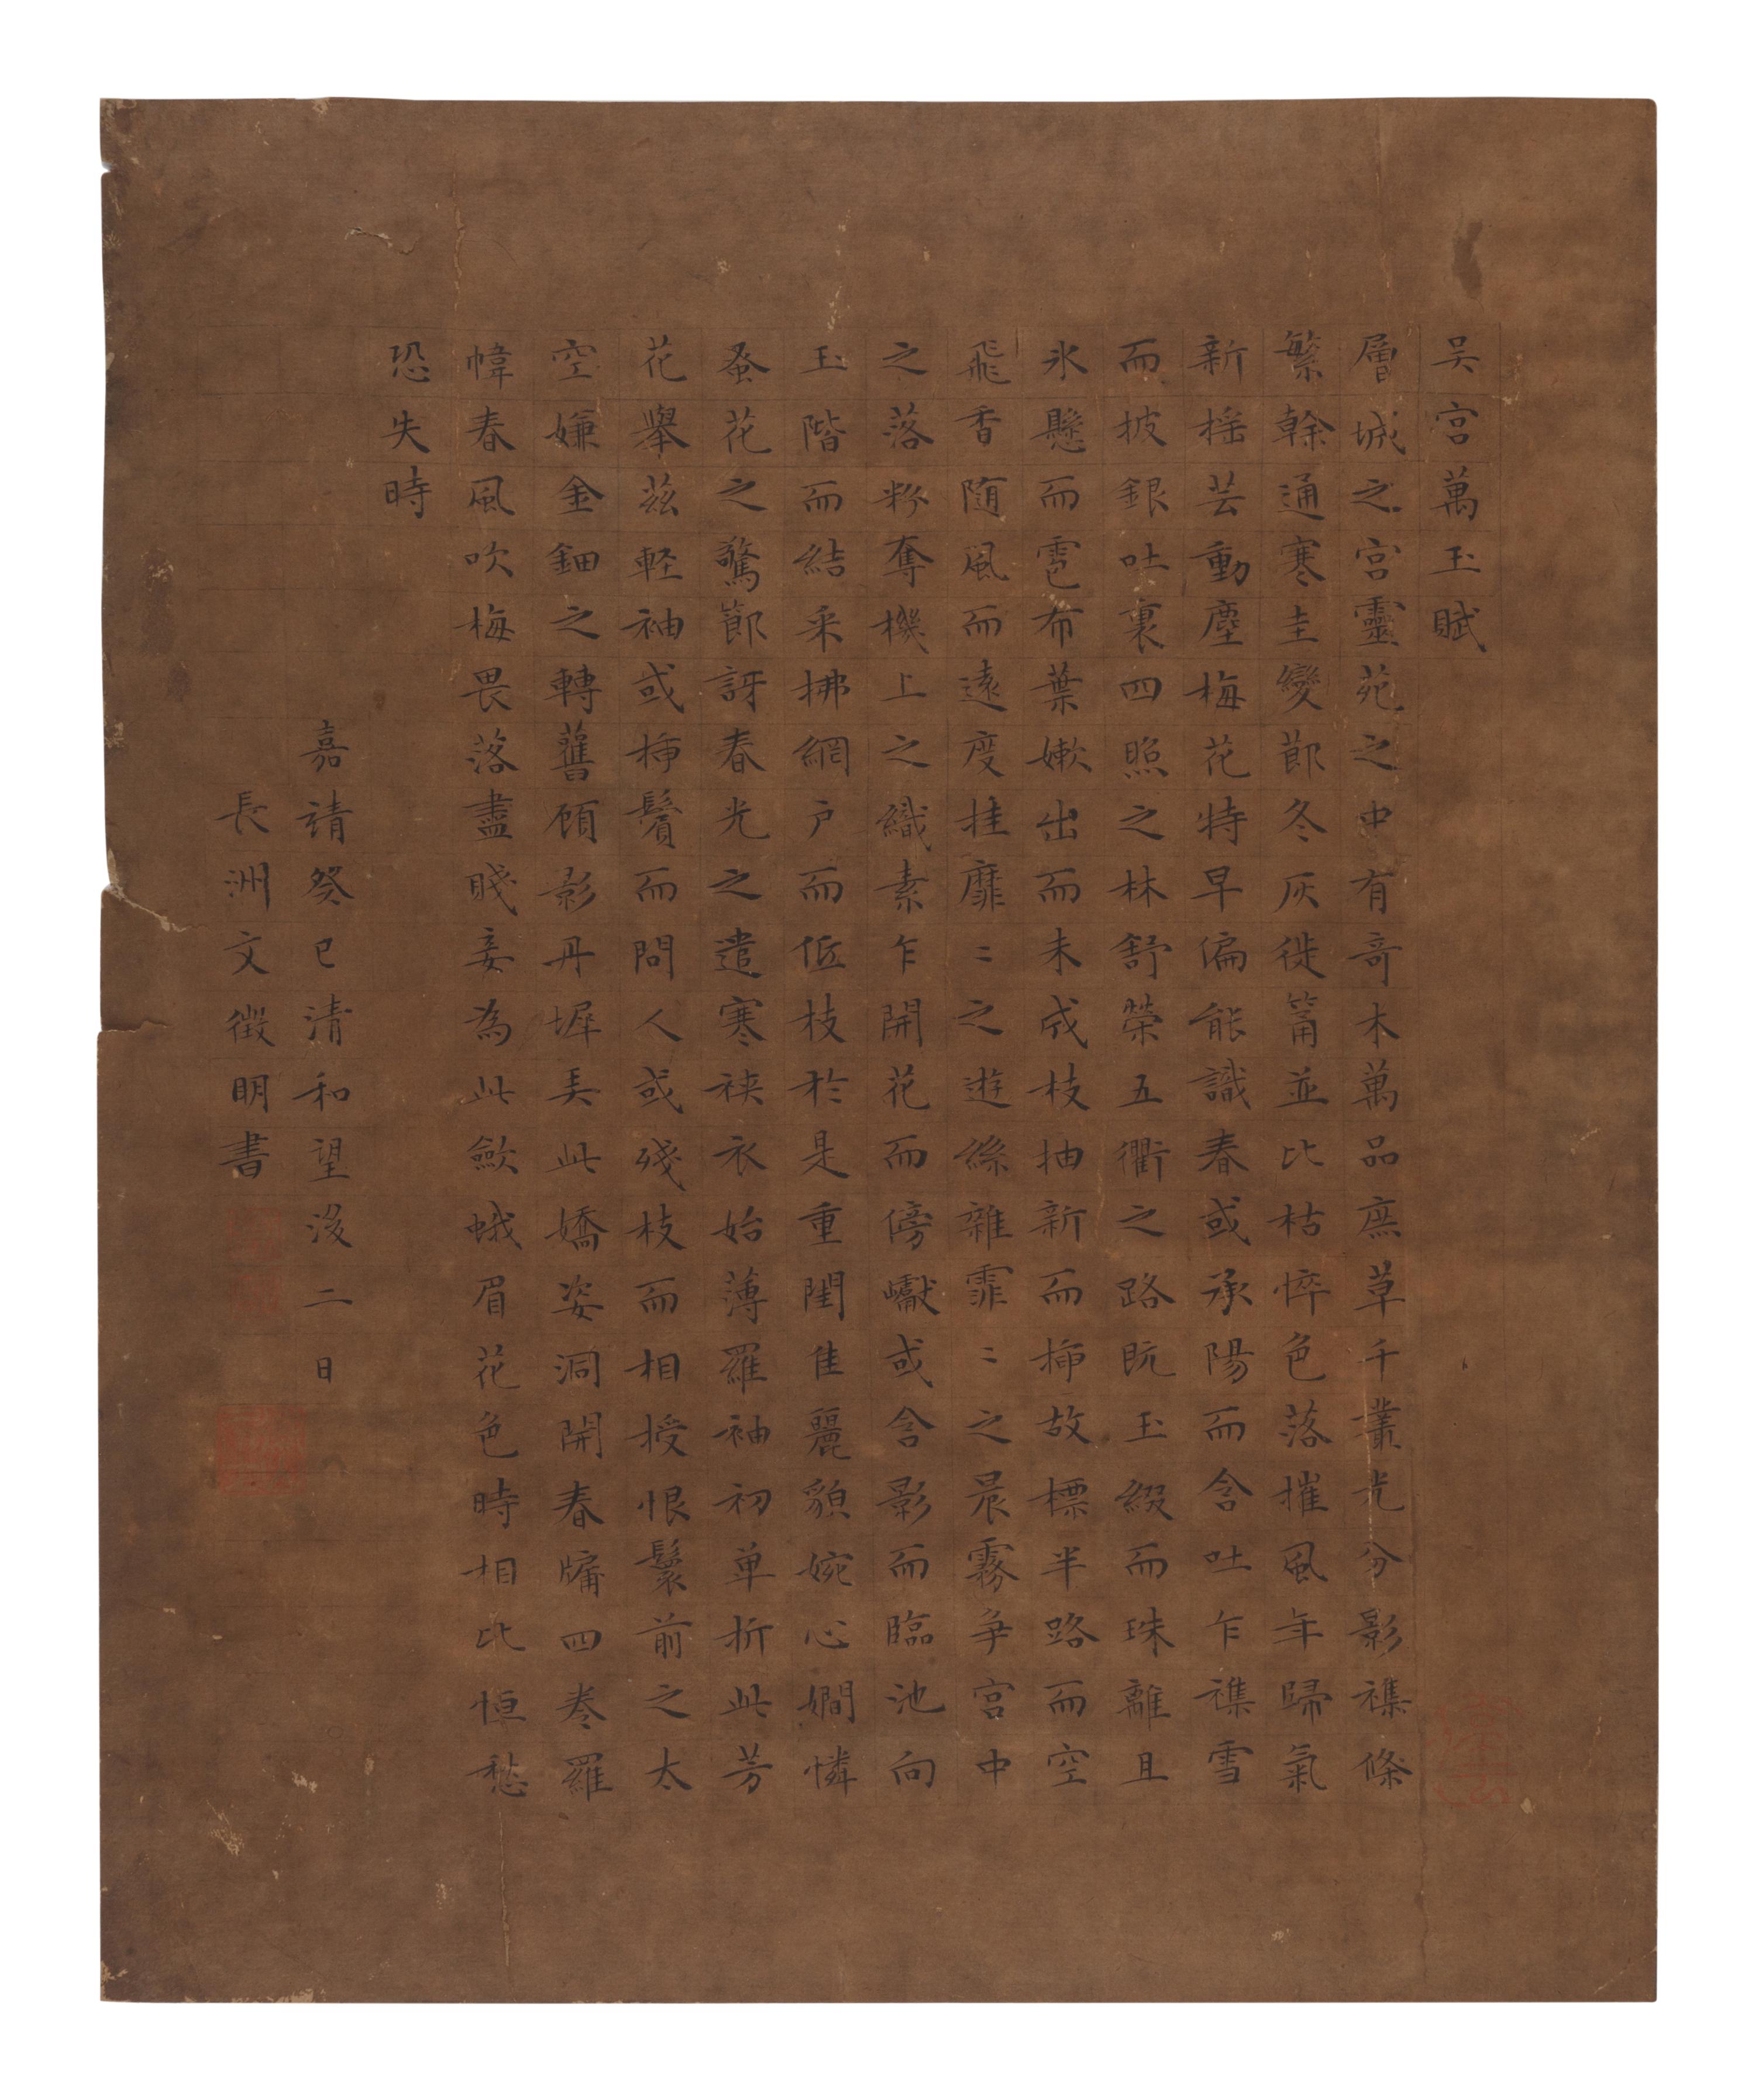 吴宫萬玉賦
層城之宫靈苑之中有奇木萬品庶草千叢光分影襍條
繁幹通寒圭變節冬灰徙筩並比枯悴色落摧風年歸氣
新揺芸動塵梅花特早偏能識春或承陽而含吐乍襍雪
而披銀吐裏四照之林舒榮五衢之路既玉綴而珠離且
氷懸而雹布葉嫰出而未成枝抽新而揷故摽半路而空
飛香随風而遠度挂靡〻之遊絲雜霏〻之晨霧争宫中
之落粉奪機上之織素乍開花而傍巘或含影而臨池向
玉階而結采拂網户而低枝於是重閨佳麗貌婉心嫺憐
蚤花之驚節訝春光之遣寒裌衣始薄羅袖初单折此芳
花擧茲軽袖或揷鬢而問人或殘枝而相授恨鬟前之太
空嫌金鈿之轉舊顧影丹墀弄此嬌姿洞開春牖四卷羅
幃春風吹梅畏落盡賤妾為此歛蛾眉花色時相比恒愁
恐失時
嘉靖癸巳清和望後二日
長洲文徵明書